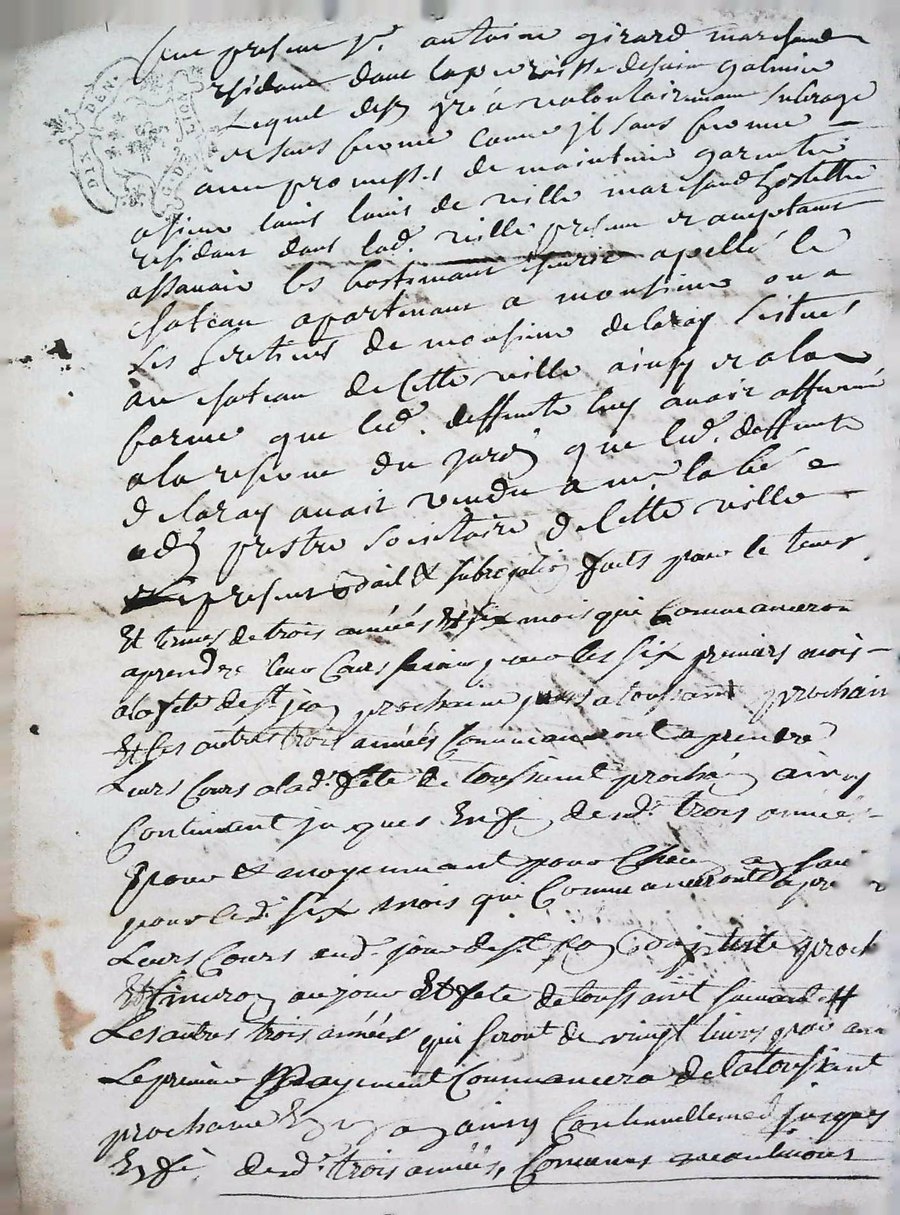 fut present Sr. antoine girard marchand
residant dans la parroisse de saint galmier
Lequel de son gré a vollontairement subroge
et sous ferme comme jl sous ferme
avec promesses de maintenir garentir
a sieur louis louis de ville marchand hostellier
residant dans lad. ville present et acceptant
assavoir les bastimant apellé le
chateau apartenant a monsieur ou a
ses heretiers de monsieur delaray scitues
au chateau de Cette ville ainsy et a la
forme que led. deffunte luy avait affermé
a la reserve du jardin que led. deffunte
delaray avait vendu a mr. labé
prestre societaire de Cette ville
Le present bail & subrogation faits pour le temps
Et termes de trois années & six mois qui Commanceron
aprendre leur Cours sçavoir pour les six premiers mois
a la fete de st jean prochaine jusqu a toussaint prochain
Et les autres trois années Commanceront a prendre
Leurs Cours a lad. fête de toussaint prochain ainsy
Continuant jusques En fin desd. trois années
pour & moyennant pour
pour led. six mois qui Commanceront a pre
Leurs Cours aud. jour de st. jean Baptiste proch
Et finiron au jour Et fete de toussaint suivant Et
Les autres trois années qui seront de vingt livres par an
Le premier Payement Commancera de la toussaint
prochaine En un an ainsy Continuellement jusques
En fin desd. trois années, Comme